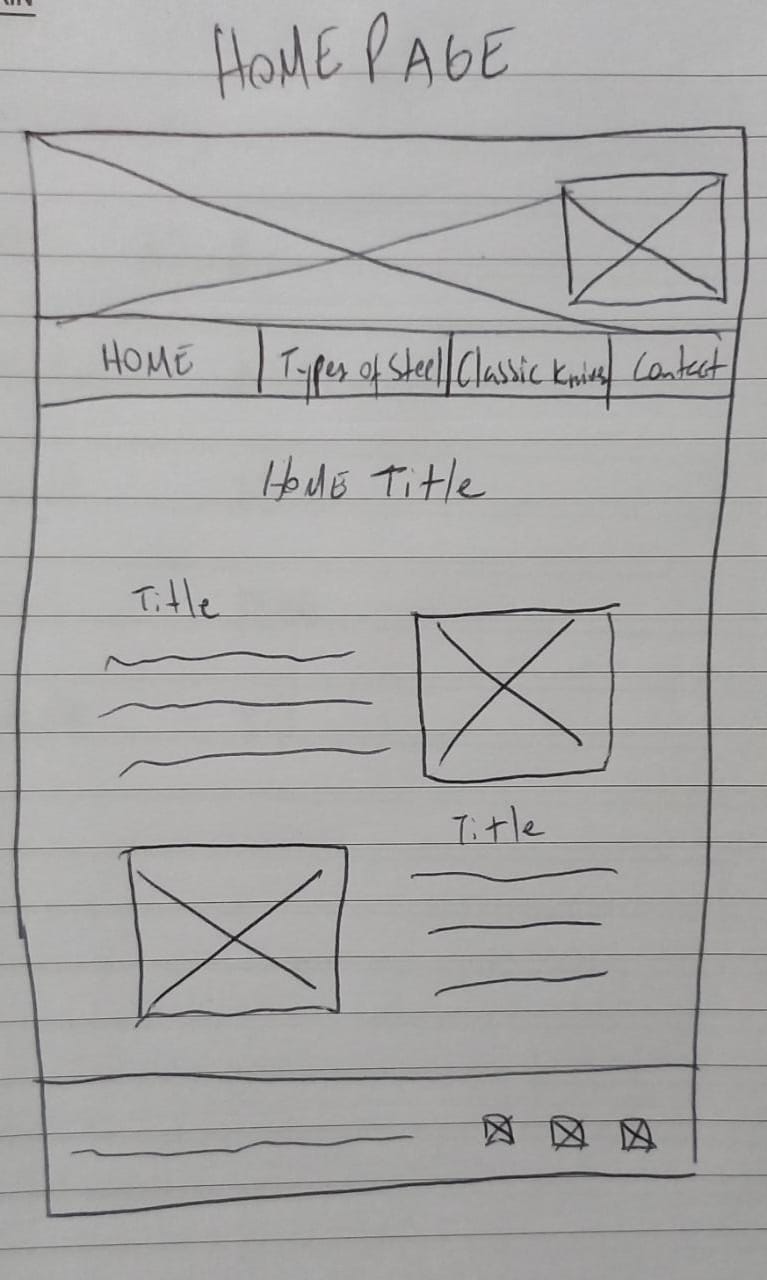 HOME PAGE
HOME
Types of Steel
Classic Knives
Contact
HOME Title
Title
Title